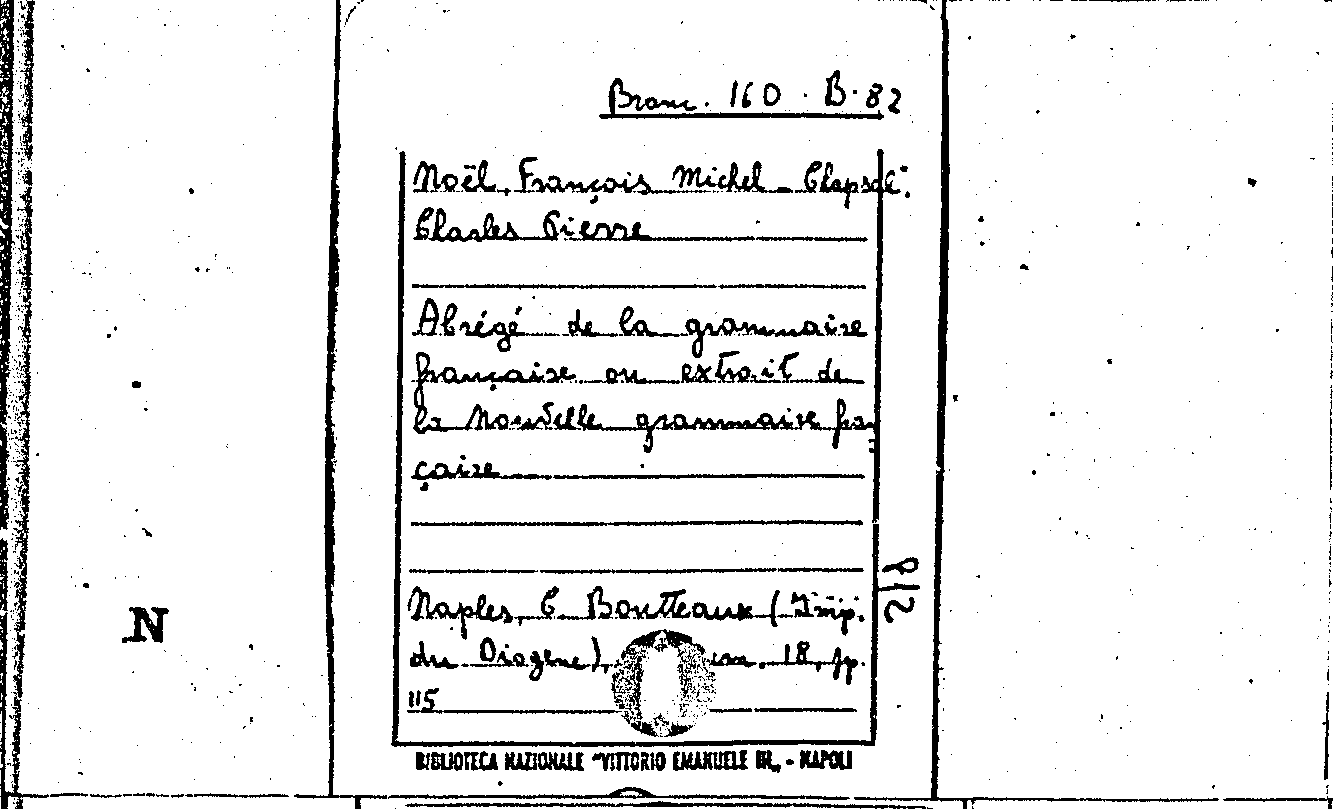 Branc. 160. B. 82
Noël, François Michel - Chapsal,
Charles Pierre
Abrégé de la grammaire
française ou extrait de
la Nouvelle grammaire fran
çaise
Naples, C. Boutteaux (Imp.
du Diogene), cm. 18, pp.
115
N
BIBLIOTECA NAZIONALE "VITTORIO EMANUELE III" - NAPOLI